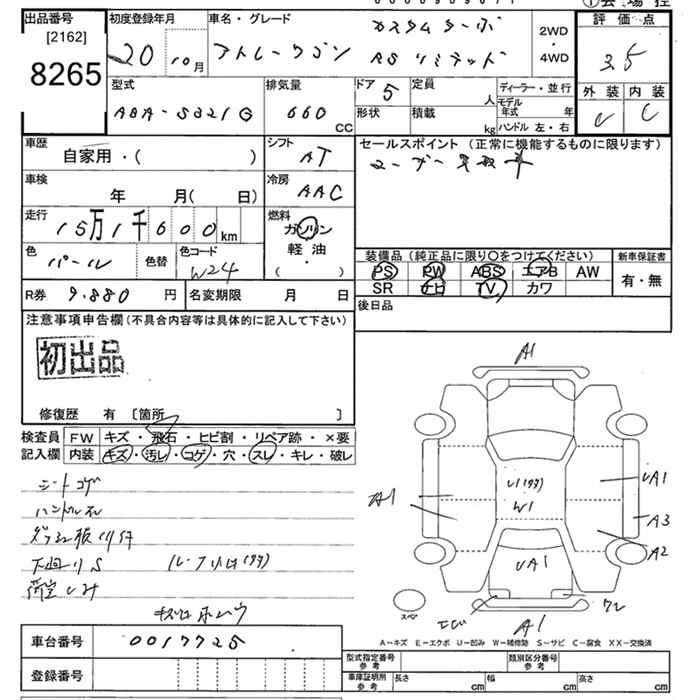 ①会場控
出品番号
[2162]
8265
初度登録年月
20 10月
車名・グレード
カスタムターボ
アトレーワゴン RSリミテッド
2WD
・
4WD
評価点
3.5
外装 内装
C C
型式
ABA-S321G
排気量
660 CC
ドア
5
形状
定員
人
積載
kg
ディーラー・並行
モデル年式 年
ハンドル 左・右
車歴
自家用・( )
シフト
AT
車検
年 月( 日)
冷房
AAC
走行
15万1千600 km
燃料
ガソリン
軽油
( ・ )
色
パール
色替
色コード
W24
R券 9.880 円
名変期限 月 日
セールスポイント(正常に機能するものに限ります)
装備品(純正品に限り○をつけてください)
PS PW ABS エアB AW
SR ナビ TV カワ
新車保証書
有・無
後日品
注意事項申告欄(不具合内容等は具体的に記入して下さい)
初出品
修復歴 有 〔箇所 〕
検査員
記入欄
FW キズ・飛石・ヒビ割・リペア跡・×要
内装 キズ・汚レ・コゲ・穴・スレ・キレ・破レ
シートコゲ
ハンドルスレ
下回りS
荷室シミ
A1
A1
W1
UA1
A3
A2
UA1
エビ
A1
スペア
A-キズ E-エクボ U-凹み W-補修跡 S-サビ C-腐食 XX-交換済
車台番号 0017725
登録番号
型式指定番号
参考
類別区分番号
参考
車庫証明用
参考
長さ cm 幅 cm 高さ cm